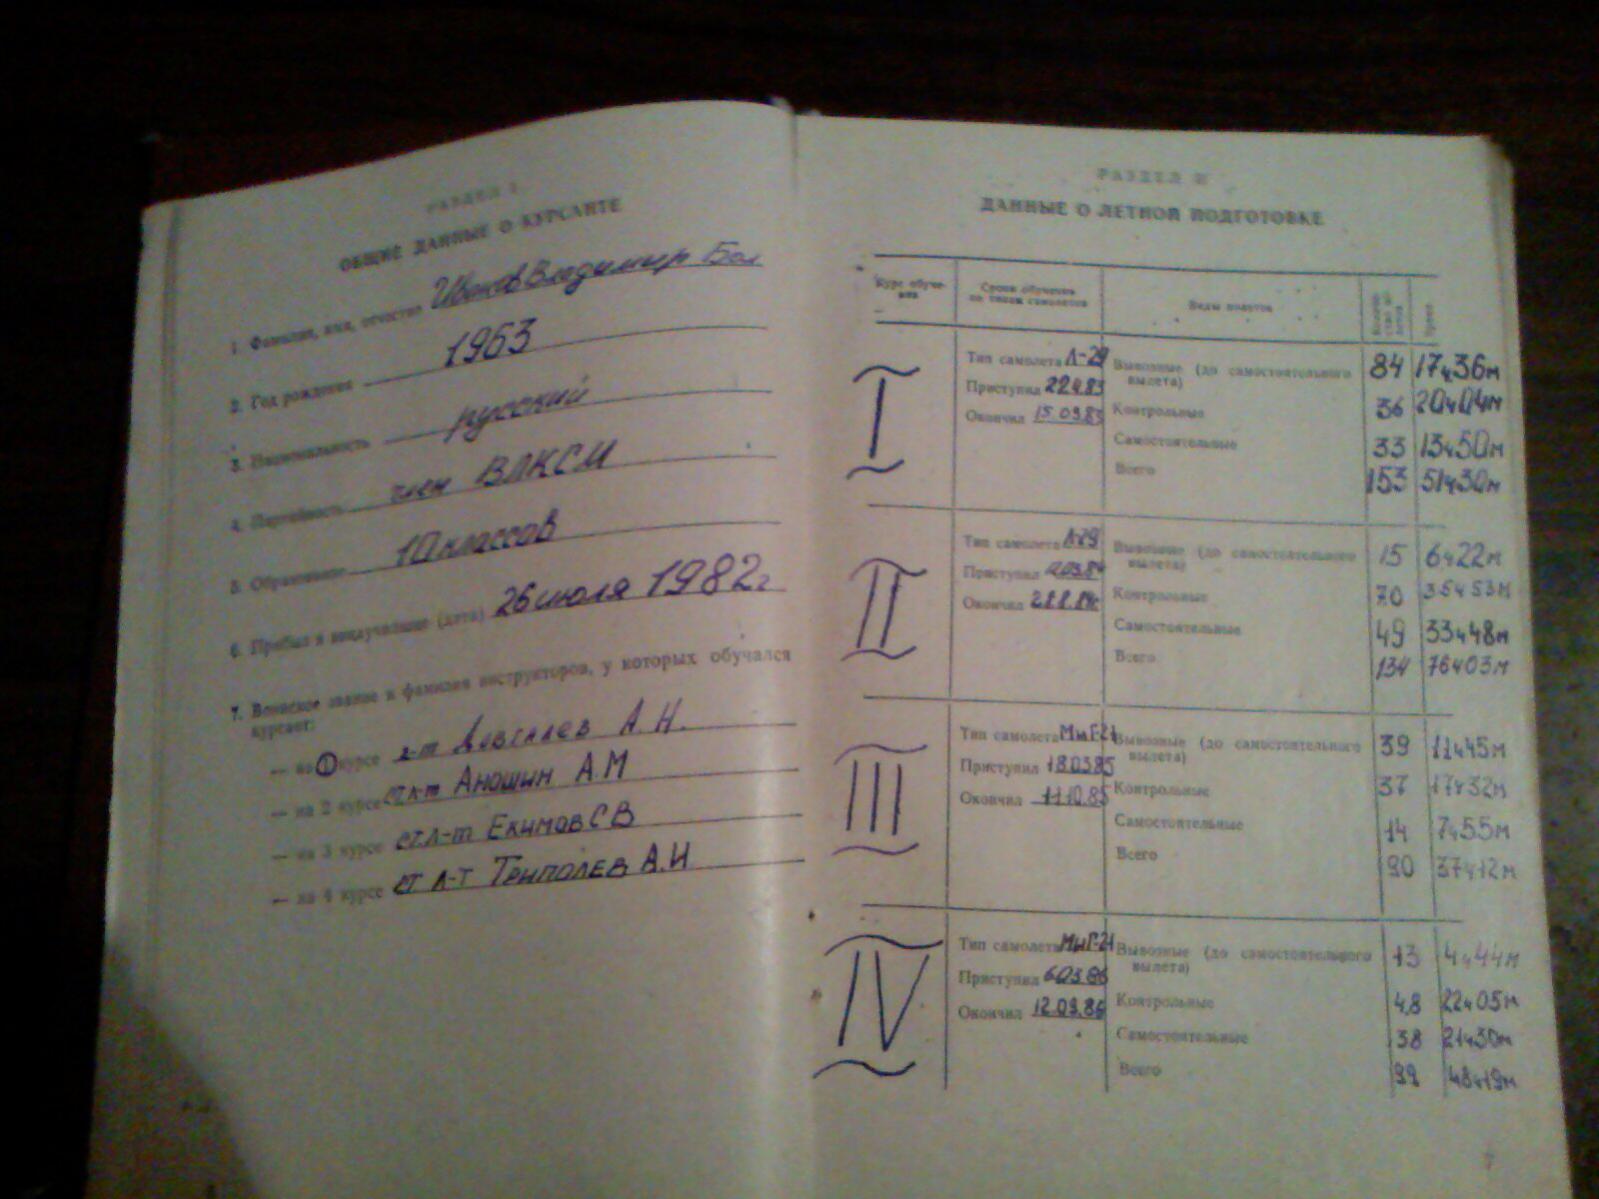 РАЗДЕЛ I
ОБЩИЕ ДАННЫЕ О КУРСАНТЕ
1. Фамилия, имя, отчество Иванов Владимир
2. Год рождения 1963
3. Национальность русский
4. Партийность член ВЛКСМ
5. Образование 10 классов
6. Прибыл в авиаучилище (дата) 26 июля 1982г
7. Воинское звание и фамилия инструкторов, у которых обучался
курсант:
— на 1 курсе л-т А.Н.
— на 2 курсе ст л-т Аношин А.М
— на 3 курсе ст л-т Екимов С В
— на 4 курсе ст л-т Триполев А.И
РАЗДЕЛ II
ДАННЫЕ О ЛЕТНОЙ ПОДГОТОВКЕ
Курс обуче-
ния
Сроки обучения
по типам самолетов
Виды полетов
Количе-
ство по-
летов
Время
I
Тип самолета Л-29 Вывозные (до самостоятельного 84 17ч36м
Приступил 22.4.83 вылета)
Контрольные 36 20ч04м
Окончил 15.09.83
Самостоятельные 33 13ч50м
Всего 153 51ч30м
II
Тип самолета Л-29 Вывозные (до самостоятельного 15 6ч22м
Приступил вылета)
Окончил Контрольные 70 35ч53м
Самостоятельные 49 33ч48м
Всего 134 76ч03м
III
Тип самолета МиГ-21 Вывозные (до самостоятельного 39 11ч45м
Приступил 18.03.85 вылета)
Окончил 11.10.85 Контрольные 37 17ч32м
Самостоятельные 14 7ч55м
Всего 90 37ч12м
IV
Тип самолета МиГ-21 Вывозные (до самостоятельного 13 4ч44м
Приступил 6.03.86 вылета)
Окончил 12.09.86 Контрольные 48 22ч05м
Самостоятельные 38 21ч30м
Всего 99 48ч19м